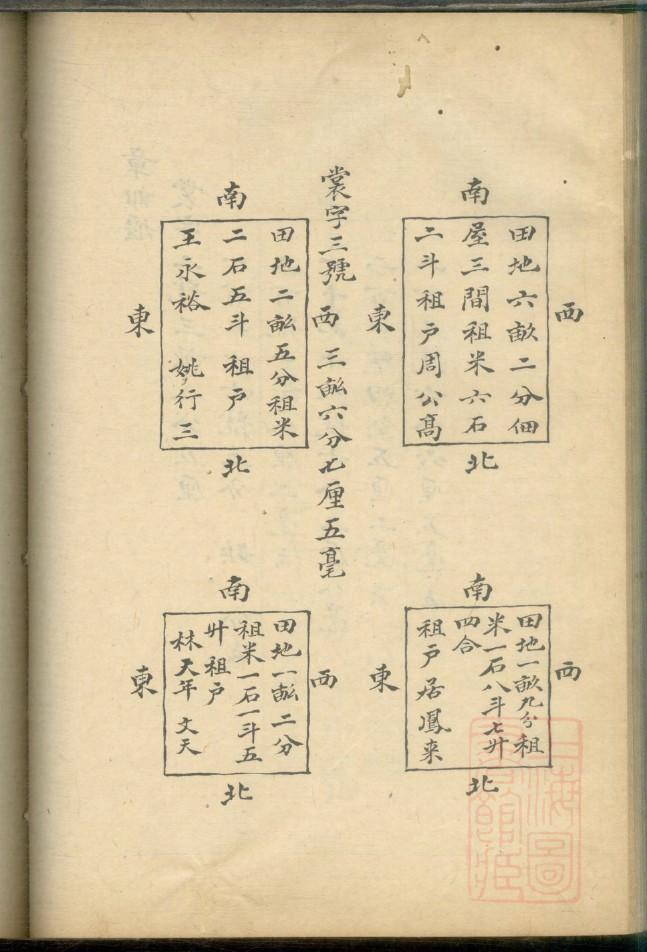 南
西
田地六畝二分佃
屋三間租米六石
二斗租戶周公高
東
北
南
西
田地一畝九分租
米一石八斗七廾
四合
租戶居鳳来
東
北
裳字三號
三畝六分七厘五毫
南
西
田地二畝五分租米
二石五斗租戶
王永裕 姚行三
東
北
南
西
田地一畝二分
租米一石一斗五
廾租戶
林天年 文天
東
北
海圖